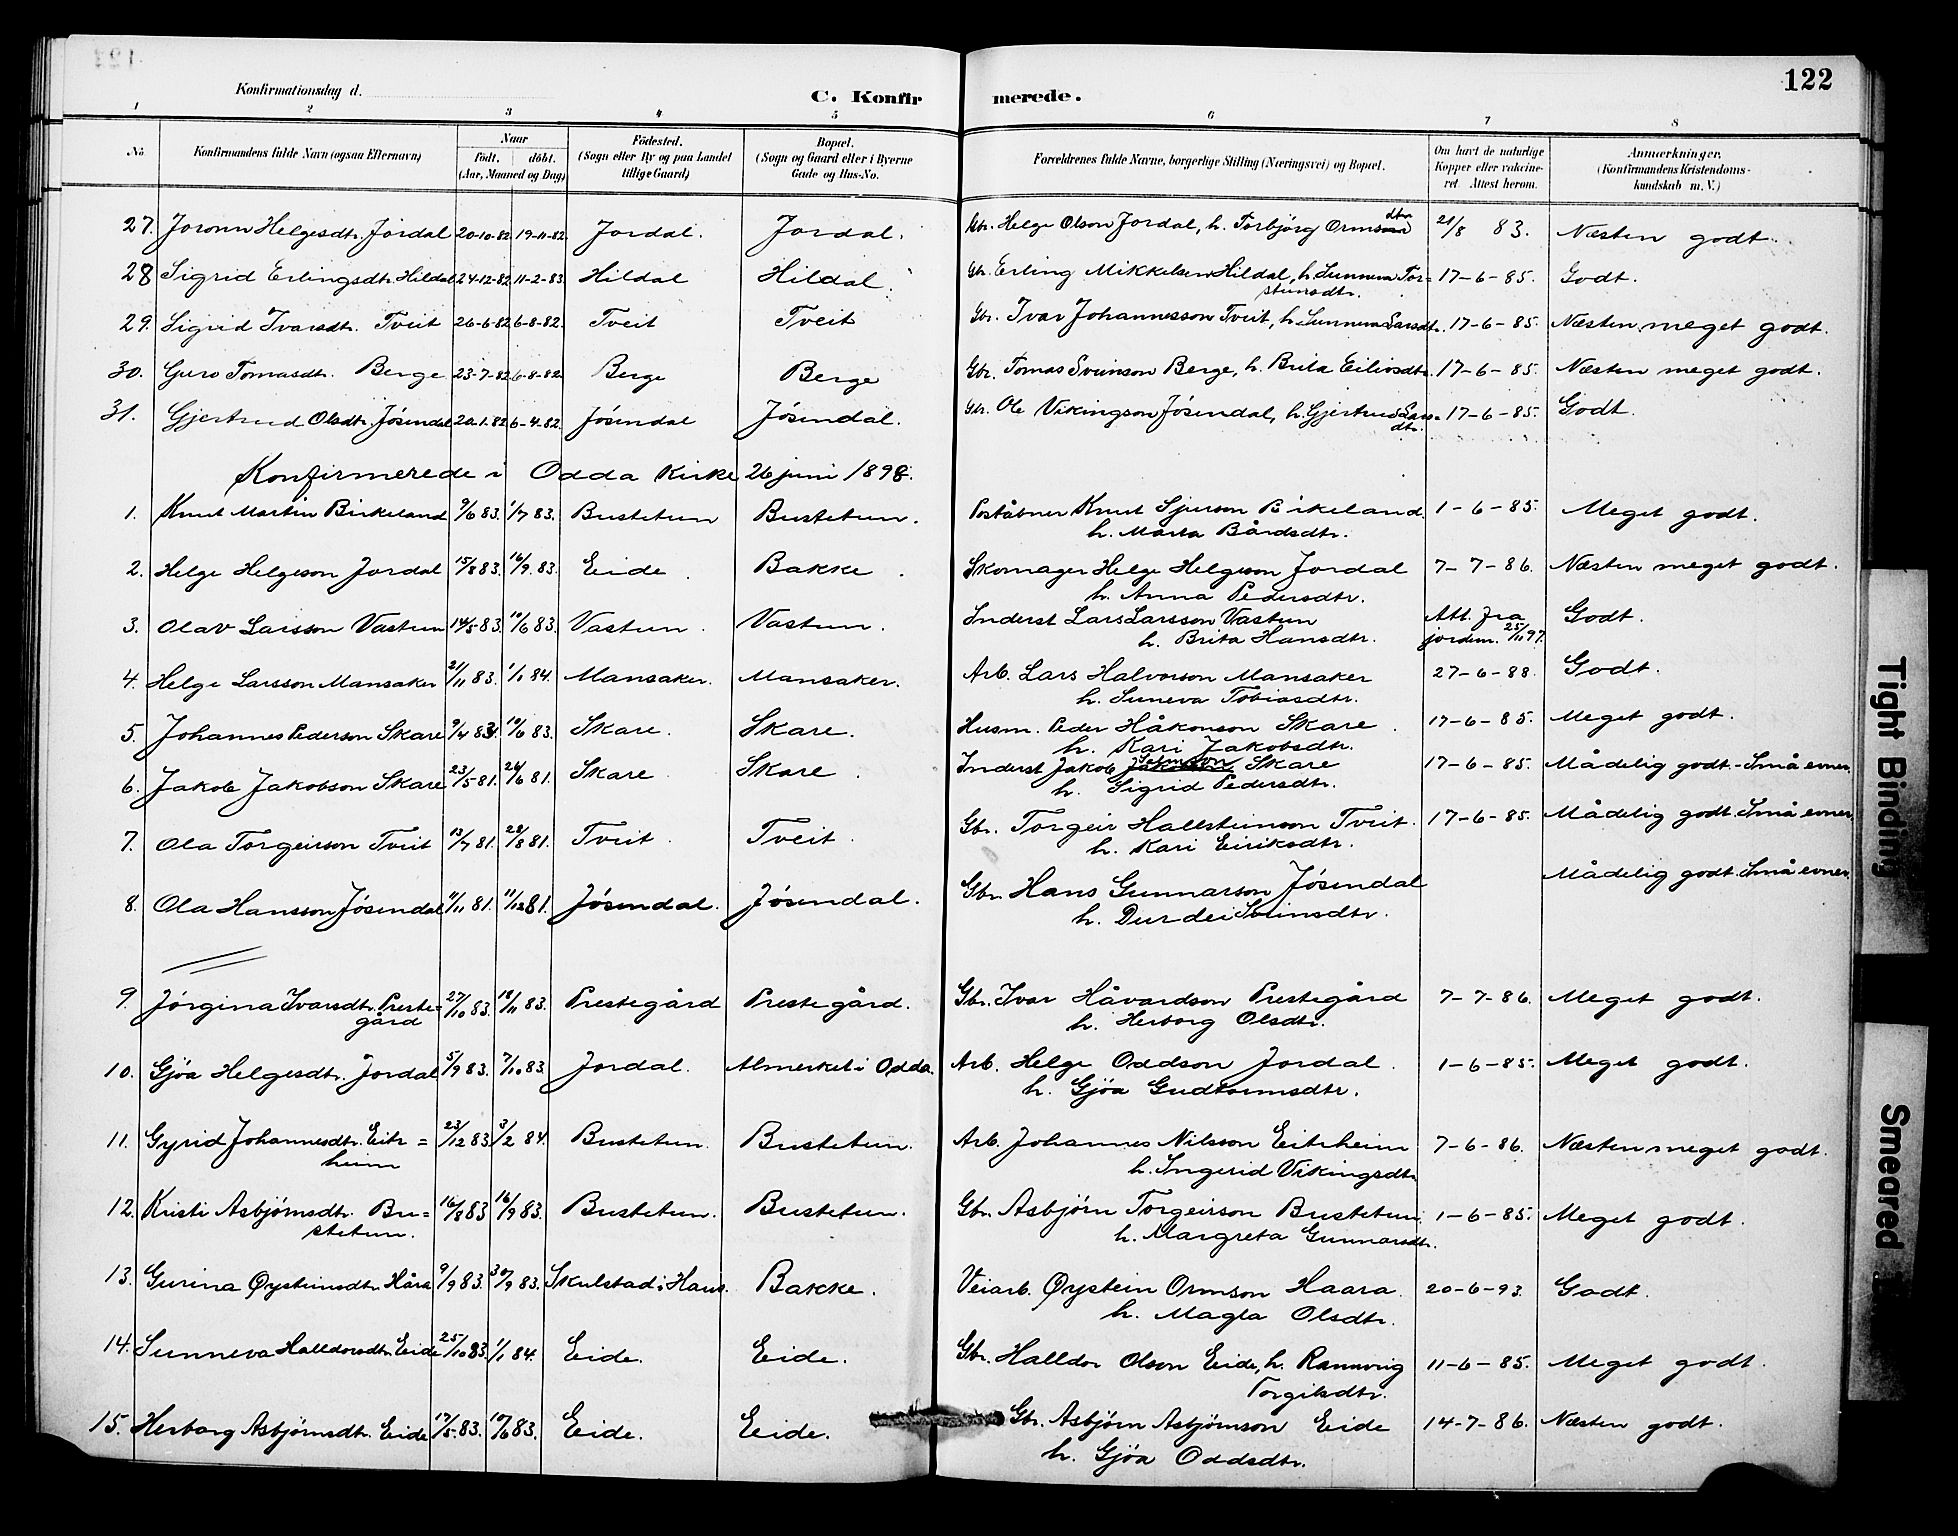 122
Konfirmationsdag d.
C. Konfirmerede.
1 2 3 4 5 6 7 8
No. Konfirmandens fulde Navn (ogsaa Efternavn) Naar født. døbt. (Aar, Maaned og Dag) Födested. (Sogn eller By og paa Landet tillige Gaard) Bopæl. (Sogn og Gaard eller i Byerne Gade og Hus-No. Forældrenes fulde Navne, borgerlige Stilling (Næringsvei) og Bopæl. Om havt de naturlige Kopper eller vakcineret. Attest herom. Anmærkninger, (Konfirmandens Kristendomskundskab m. V.)
27. Joronn Helgesdtr. Jordal 20-10-82 19-11-82. Jordal. Jordal. Gbr. Helge Olson Jordal, h. Torbjörg Ormsdtr 21/8 83. Næsten godt.
28 Sigrid Erlingsdtr. Hildal 24-12-82 11-2-83. Hildal Hildal. Gbr. Erling Mikkelsen Hildal, h. Sunneva Tor=
steinsdtr. 17-6-85. Godt.
29. Sigrid Ivarsdtr. Tveit 26-6-82 6-8-82. Tveit Tveit Gbr. Ivar Johannesson Tveit, h. Sunneva Larsdtr. 17-6-85. Næsten meget godt.
30. Guro Tomasdtr. Berge 23-7-82 6-8-82 Berge Berge Gbr. Tomas Sveinson Berge, h. Brita Eilivsdtr. 17-6-85. Næsten meget godt.
31. Gjertrud Olsdtr. Jösendal 20.1.82 6-4.82. Jösendal Jösendal. Gbr. Ole Vikingson Jösendal, h. Gjertrud Lars=
dtr. 17-6-85. Godt.
Konfirmerede i Odda Kirke 26 juni 1898.
1. Knut Martin Birkeland 9/6 83. 1/7 83. Bustetun Bustetun. Poståbner Knut Sjurson Birkeland
h. Marta Bårdsdtr. 1-6-85. Meget godt.
2. Helge Helgeson Jordal 15/8 83. 16/9. 83. Eide. Bakke. Skomager Helge Helgeson Jordal
h. Anna Pedersdtr. 7-7-86. Næsten meget godt.
3. Olav Larsson Vastun 14/5 83. 10/6 83. Vastun. Vastun. Inderst Lars Larsson Vastun
h. Brita Hansdtr. Att. fra
jordm. 25/11 97. Godt.
4. Helge Larsson Mansaker 21/11 83. 1/1 84. Mansaker. Mansaker. Arb. Lars Halvorson Mansaker
h. Suneva Tobiasdtr. 27-6-88. Godt.
5. Johannes Pederson Skare 9/4 83. 10/6 83. Skare. Skare. Husm. Peder Håkonson Skare.
h. Kari Jakobsdtr. 17-6-85. Meget godt.
6. Jakob Jakobson Skare 23/5 81. 26/6 81. Skare Skare. Inderst Jakob Skare
h. Sigrid Pedersdtr. 17-6-85. Mådelig godt. - Små evner.
7. Ola Torgeirson Tveit 13/7 81. 28/8 81. Tveit. Tveit. Gbr. Torgeir Hallsteinson Tveit.
h. Kari Eiriksdtr. 17-6-85. Mådelig godt. Små evner.
8. Ola Hansson Jösendal 11/11 81. 11/12 81. Jösendal. Jösendal. Gbr. Hans Gunnarson Jösendal
h. Durdei Sveinsdtr. Mådelig godt. Små evner.
9. Jörgina Ivarsdtr. Preste=
gård 27/10 83. 18/11 83. Prestegård Prestegård. Gbr. Ivar Håvardson Prestegård
h. Herborg Olsdtr. 7-7-86. Meget godt.
10. Gjöa Helgesdtr. Jordal 5/9 83. 7/10 83. Jordal. Almerket i Odda. Arb. Helge Oddson Jordal.
h. Gjöa Gudtormsdtr. 1-6-85. Meget godt.
11. Gyrid Johannesdtr. Eitr=
heim 23/12 83. 3/2 84. Bustetun. Bustetun. Arb. Johannes Nilsson Eitrheim
h. Ingerid Vikingsdtr 7-6-86. Næsten meget godt.
12. Kristi Asbjörnsdtr. Bu=
stetun. 16/8 83 16/9 83. Bustetun. Bustetun. Gbr. Asbjörn Torgeirson Bustetun.
h. Margreta Gunnarsdtr. 1-6-85. Meget godt.
13. Gurina Øysteinsdtr. Håra 9/9 83. 30/9 83. Skulstad i Haus. Bakke. Veiarb. Øystein Ormson Haara.
h. Magla Olsdtr. 20-6-93. Godt.
14. Sunneva Halldorsdtr. Eide 25/10 83. 1/1 84. Eide. Eide. Gbr. Halldor Olson Eide, h. Rannveig
Torgilsdtr. 11-6-85. Meget godt.
15. Herborg Asbjörnsdtr. Eide 17/5 83. 10/6 83. Eide. Eide. Gbr. Asbjörn Asbjörnson Eide
h. Gjöa Oddsdtr. 14-7-86. Næsten godt.
Tight Binding
Smeared